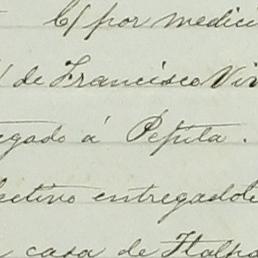 C/ por medici
de Francisco Vi
egado á Pepita.
ectivo entregadole
casa de Tlalpa